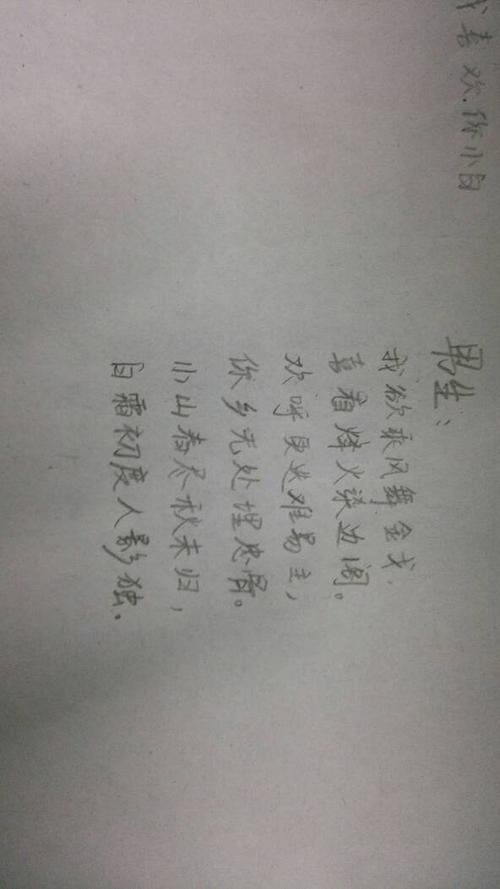 我喜欢你小白
男生：
我欲乘风舞金戈，
喜看烽火染边阁。
欢呼更迭难易主，
你乡无处埋忠骨。
小山春尽秋未归，
白霜初度人影独。